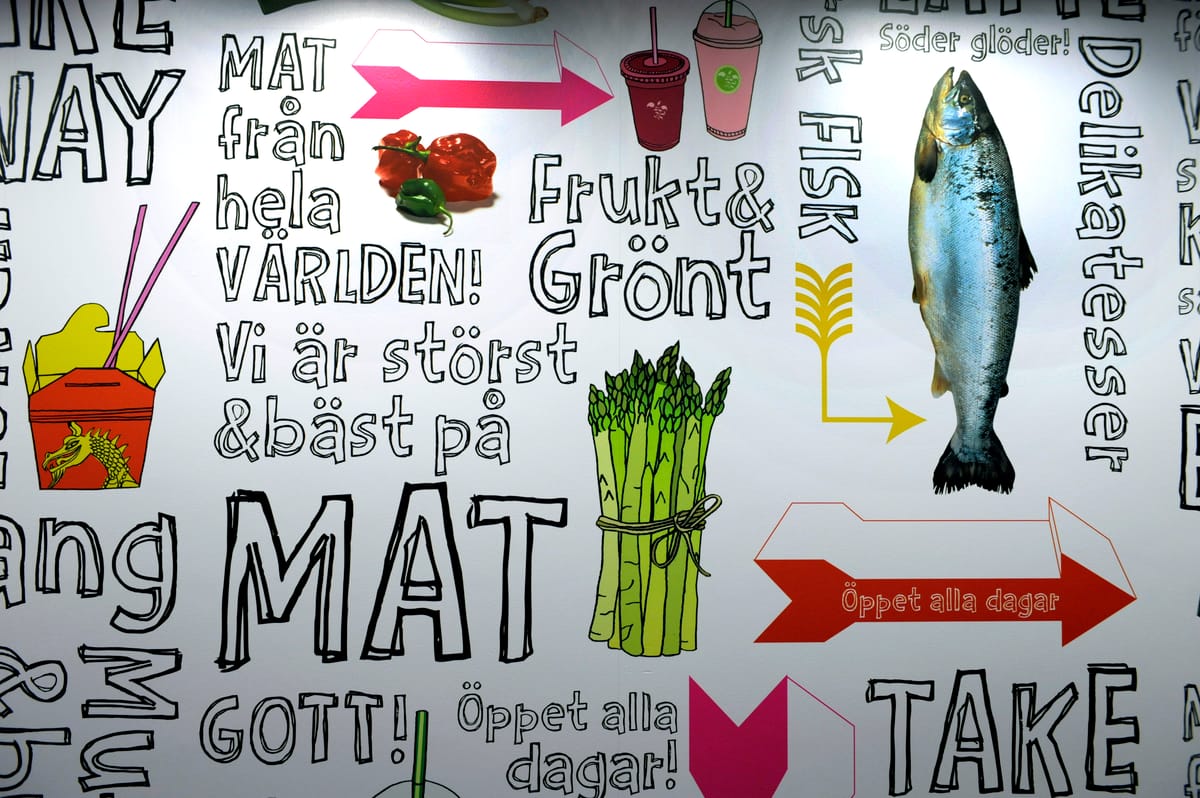 WAY
MAT
från
hela
VÄRLDEN!
Vi är störst
&bäst på
MAT
GOTT!
Frukt&
Grönt
FISK
Söder glöder!
Delikatesser
Öppet alla dagar
Öppet alla
dagar!
TAKE